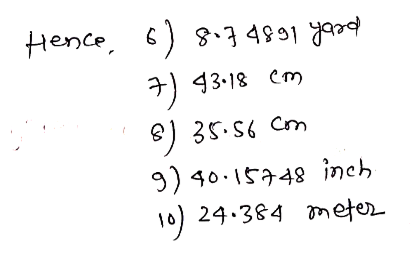 Hence, 6) 8.74891 yard
7) 43.18 cm
8) 35.56 cm
9) 40.15748 inch
10) 24.384 meter